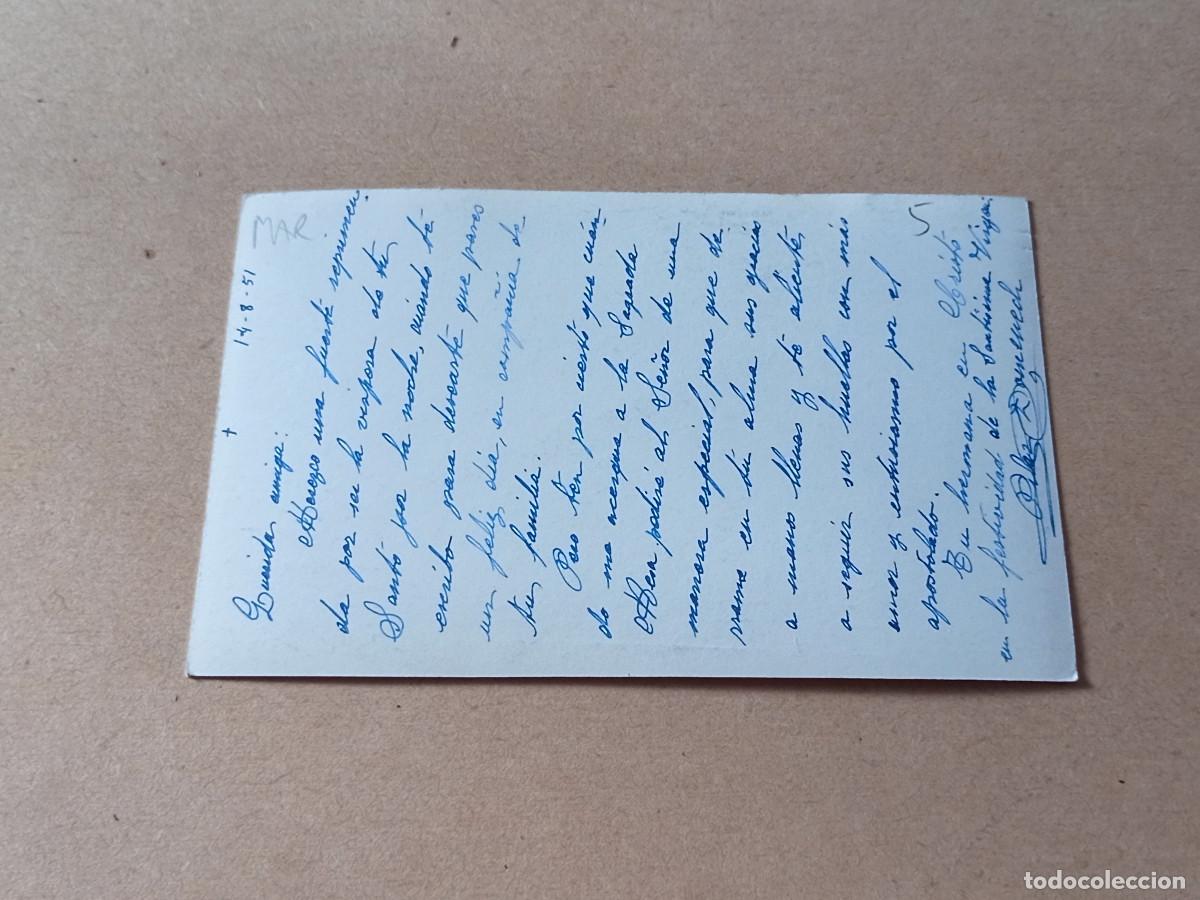 + 14-8-51
MAR.
Querida amiga:
Merezco una fuerte reprimen-
da por ser la víspera de tu
Santo por la noche, cuando te
escribo para desearte que pases
un feliz día, en compañía de
tu familia.
Pero ten por cierto que cuán-
do me acerque a la Sagrada
Mesa pediré al Señor de una
manera especial, para que de-
rrame en tu alma sus gracias
a manos llenas y te aliente
a seguir sus huellas con más
amor y entusiasmo por el
apostolado.
5
Tu hermana en Cristo
en la festividad de la Santísima Virgen:
Domenech
todocoleccion